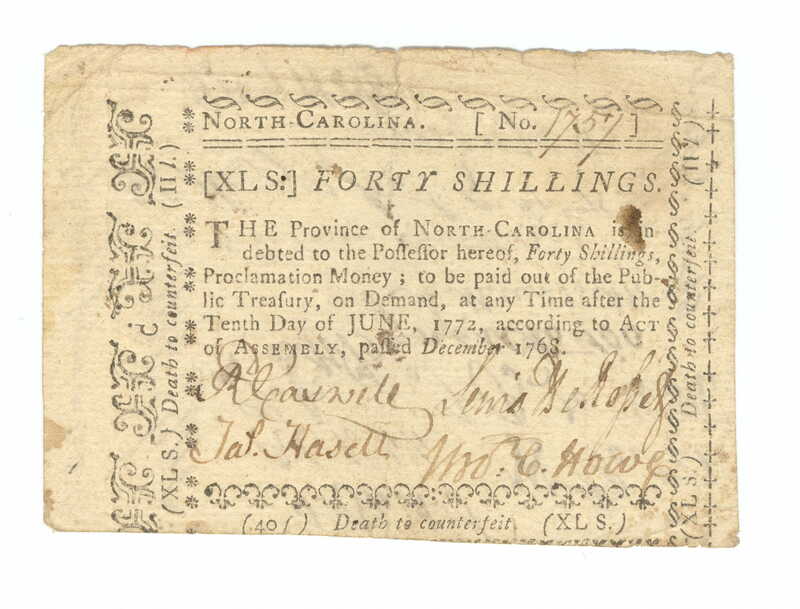 NORTH-CAROLINA. [ No. 1757 ]
[XL S:] FORTY SHILLINGS.
THE Province of NORTH-CAROLINA is in
debted to the Poſſeſſor hereof, Forty Shillings,
Proclamation Money ; to be paid out of the Pub-
lic Treaſury, on Demand, at any Time after the
Tenth Day of JUNE, 1772, according to ACT
of ASSEMBLY, paſſed December 1768.
R Caswell Lewis De Rosset
Jas. Hasell Jno. C. Howe
(40ſ) Death to counterfeit. (XL S.)
(XL S.) Death to counterfeit. (II l.)
(XL S.) Death to counterfeit. (II l.)